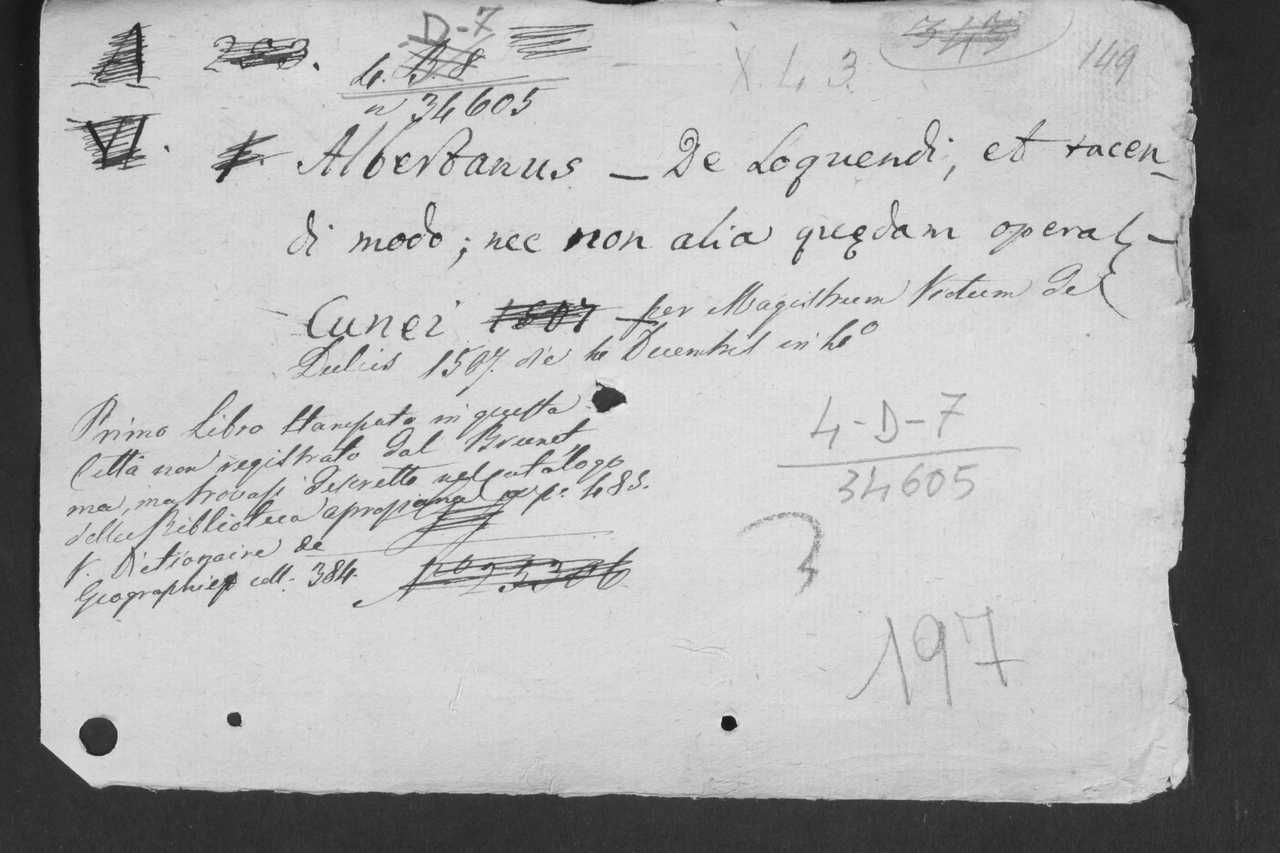 A 203. D-7
4. B. 8
n 34605
X. 4 3.
343
149
VI. Albertanus — De Loquendi, et tacen-
di modo; nec non alia quędam opera –
Cunei 1507 per Magistrum Viotum de
Dulcis 1507. die 4 Decembris in 4º
Primo Libro stampato in questa
Città non registrato dal Brunet
ma, ma trovasi descritto nel catalogo
della Biblioteca a p. 485.
V. Dictionaire de
Geographie coll. 384.
Nº 25306
4-D-7
34605
197